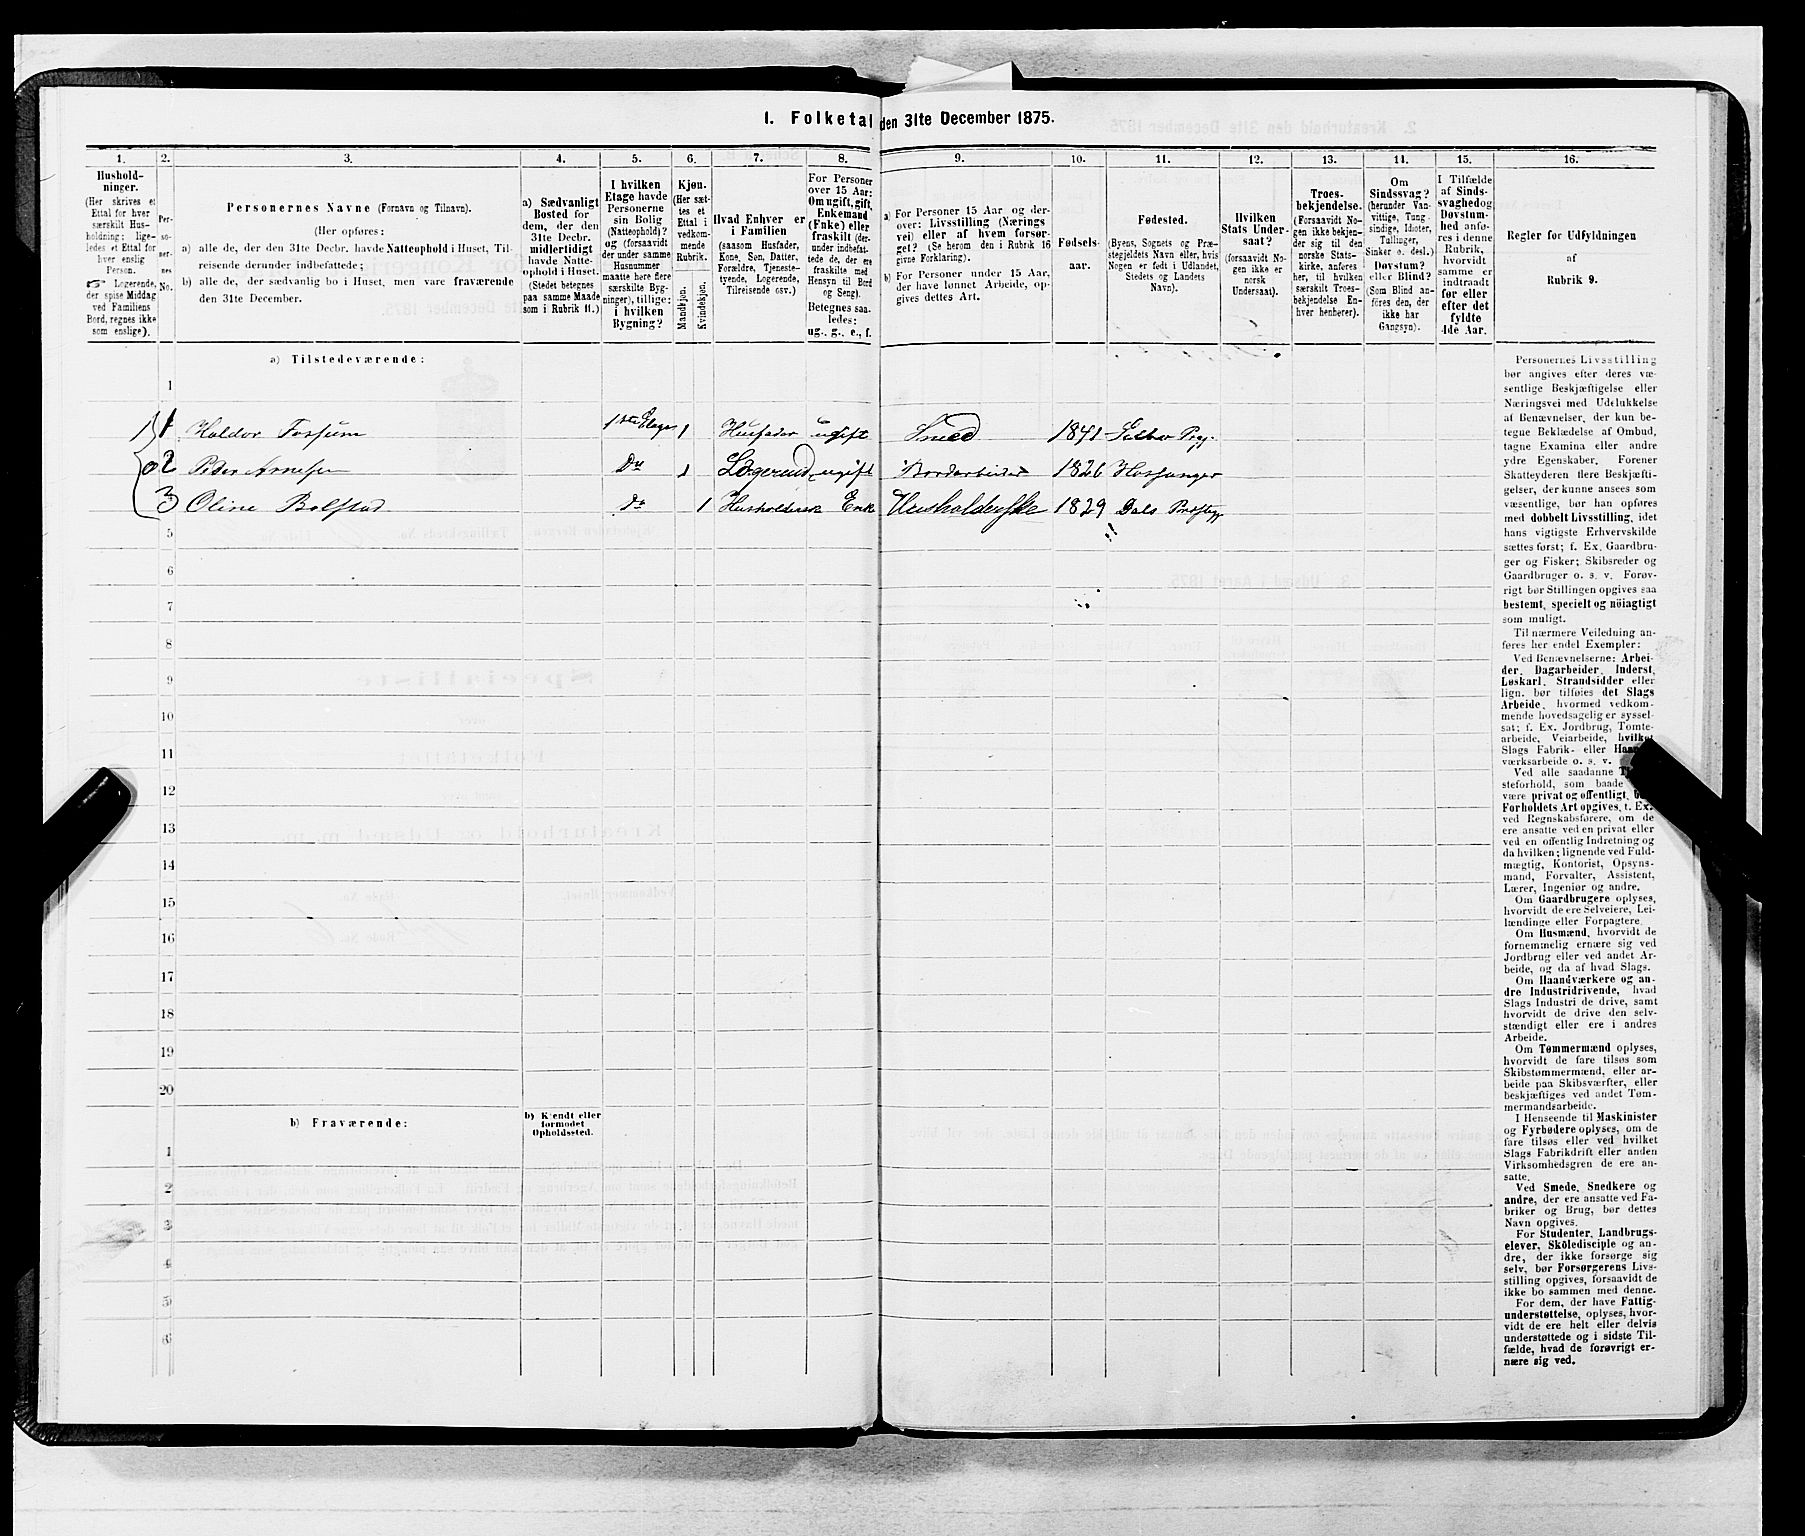 1. Folketal den 31te December 1875.
1. 2. 3. 4. 5. 6. 7. 8. 9. 10. 11. 12. 13. 14. 15. 16.
Hushold-
ninger.
(Her skrives et
Ettal for hver
særskilt Hus-
holdning; lige-
ledes et Ettal for
hver enslig
Person.
☞ Logerende,
der spise Middag
ved Familiens
Bord, regnes ikke
som enslige).
Per-
so-
ner-
nes
No.
Personernes Navne (Fornavn og Tilnavn).
(Her opføres:
a) alle de, der den 31te Decbr. havde Natteophold i Huset, Til-
reisende derunder indbefattede;
b) alle de, der sædvanlig bo i Huset, men vare fraværende
den 31te December.
a) Sædvanligt
Bosted for
dem, der den
31te Decbr.
midlertidigt
havde Natte-
ophold i Huset.
(Stedet betegnes
paa samme Maade
som i Rubrik 11.)
I hvilken
Etage havde
Personerne
sin Bolig
(Natteophold)?
og (forsaavidt
der under samme
Husnummer
maatte høre flere
særskilte Byg-
ninger), tillige:
i hvilken
Bygning?
Kjøn.
(Her sæt-
tes et
Ettal i
vedkom-
mende
Rubrik.
Mandkjøn.
Kvindekjøn.
Hvad Enhver er
i Familien
(saasom Husfader,
Kone, Søn, Datter,
Forældre, Tjeneste-
tyende, Logerende,
Tilreisende osv.)
For Personer
over 15 Aar:
Om ugift, gift,
Enkemand
(Enke) eller
fraskilt (der-
under indbefat-
tede de, der ere
fraskilte med
Hensyn til Bord
og Seng).
Betegnes saa-
ledes:
ug., g., e., f.
a) For Personer 15 Aar og der-
over: Livsstilling (Nærings
vei) eller af hvem forsør-
get? (Se herom den i Rubrik 16
givne Forklaring).
b) For Personer under 15 Aar,
der have lønnet Arbeide, op-
gives dettes Art.
Fødsels-
aar.
Fødested.
(Byens, Sognets og Præ-
stegjeldets Navn eller, hvis
Nogen er født i Udlandet,
Stedets og Landets
Navn).
Hvilken
Stats Under-
saat?
(forsaavidt No-
gen ikke er
norsk
Undersaat).
Troes-
bekjendelse.
(Forsaavidt No-
gen ikke bekjen-
der sig til den
norske Stats-
kirke, anføres
her, til hvilken
særskilt Troes-
bekjendelse En-
hver henhører).
Om
Sindssvag?
(herunder Van-
vittige, Tung-
sindige, Idioter,
Tullinger,
Sinker o. desl.)
Døvstum?
eller Blind?
(Som Blind an-
føres den, der
ikke har
Gangsyn).
I Tilfælde
af Sinds-
svaghed og
Døvstum-
hed anfø-
res i denne
Rubrik,
hvorvidt
samme er
indtraadt
før eller
efter det
fyldte
4de Aar.
Regler for Udfyldningen
af
Rubrik 9.
a) Tilstedeværende:
1
1 1 Haldor Fossum 1ste Etage 1 Husfader ugift Smed 1841
0 2 Peder Arnesen Do 1 Logerend ugift 1826
3 Oline Bolstad Do 1 Enke 1829 Dals
5
6
7
8
9
10
11
12
13
14
15
16
17
18
19
20
b) Fraværende:
b) Kjendt eller
formodet
Opholdssted.
1
2
3
4
5
6
Personernes Livsstilling
bør angives efter deres væ-
sentlige Beskjæftigelse eller
Næringsvei med Udelukkelse
af Benævnelser, der kun be-
tegne Beklædelse af Ombud,
tagne Examina eller andre
ydre Egenskaber. Forener
Skatteyderen flere Beskjæfti-
gelser, der kunne ansees som
væsentlige, bør han opføres
med dobbelt Livsstilling, idet
hans vigtigste Erhvervskilde
sættes først; f. Ex. Gaardbru-
ger og Fisker; Skibsreder og
Gaardbruger o. s. v. Forøv-
rigt bør Stillingen opgives saa
bestemt, specielt og nöiagtigt
som muligt.
Til nærmere Veiledning an-
føres her endel Exempler:
Ved Benævnelserne: Arbei-
der, Dagarbeider, Inderst,
Løskarl, Strandsidder eller
lign. bør tilføies det Slags
Arbeide, hvormed vedkom-
mende hovedsagelig er syssel-
sat; f. Ex. Jordbrug, Tomte-
arbeide, Veiarbeide, hvilket
Slags Fabrik- eller Haand-
værksarbeide o. s. v.
Ved alle saadanne
steforhold, som baade
være privat og offentligt,
Forholdets Art opgives, t. Ex.
ved Regnskabsførere, om de
ere ansatte ved en privat eller
ved en offentlig Indretning og
da hvilken; lignende ved Fuld-
mægtig, Kontorist, Opsyns-
mand, Forvalter, Assistent,
Lærer, Ingeniør og andre.
Om Gaardbrugere oplyses,
hvorvidt de ere Selveiere, Lei-
lændinge eller Forpagtere.
Om Husmænd, hvorvidt de
fornemmelig ernære sig ved
Jordbrug eller ved andet Ar-
beide, og da af hvad Slags.
Om Haandværkere og an-
dre Industridrivende, hvad
Slags Industri de drive, samt
hvorvidt de drive den selv-
stændigt eller ere i andres
Arbeide.
Om Tømmermænd oplyses,
hvorvidt de fare tilsøs som
Skibstømmermænd, eller ar-
beide paa Skibsværfter, eller
beskjæftiges ved andet Tøm-
mermandsarbeide.
I Henseende til Maskinister
og Fyrbødere oplyses, om de
fare tilsøs eller ved hvilket
Slags Fabrikdrift eller anden
Virksomhedsgren de ere an-
satte.
Ved Smede, Snedkere og
andre, der ere ansatte ved Fa-
briker og Brug, bør dettes
Navn opgives.
For Studenter, Landbrugs-
elever, Skoledisciple og an-
dre, der ikke forsørge sig
selv, bør Forsørgerens Livs-
stilling opgives, forsaavidt de
ikke bo sammen med denne.
For dem, der have Fattig-
understøttelse, oplyses, hvor-
vidt de ere helt eller delvis
understøttede og i sidste Til-
fælde, hvad de forøvrigt er-
nære sig ved.